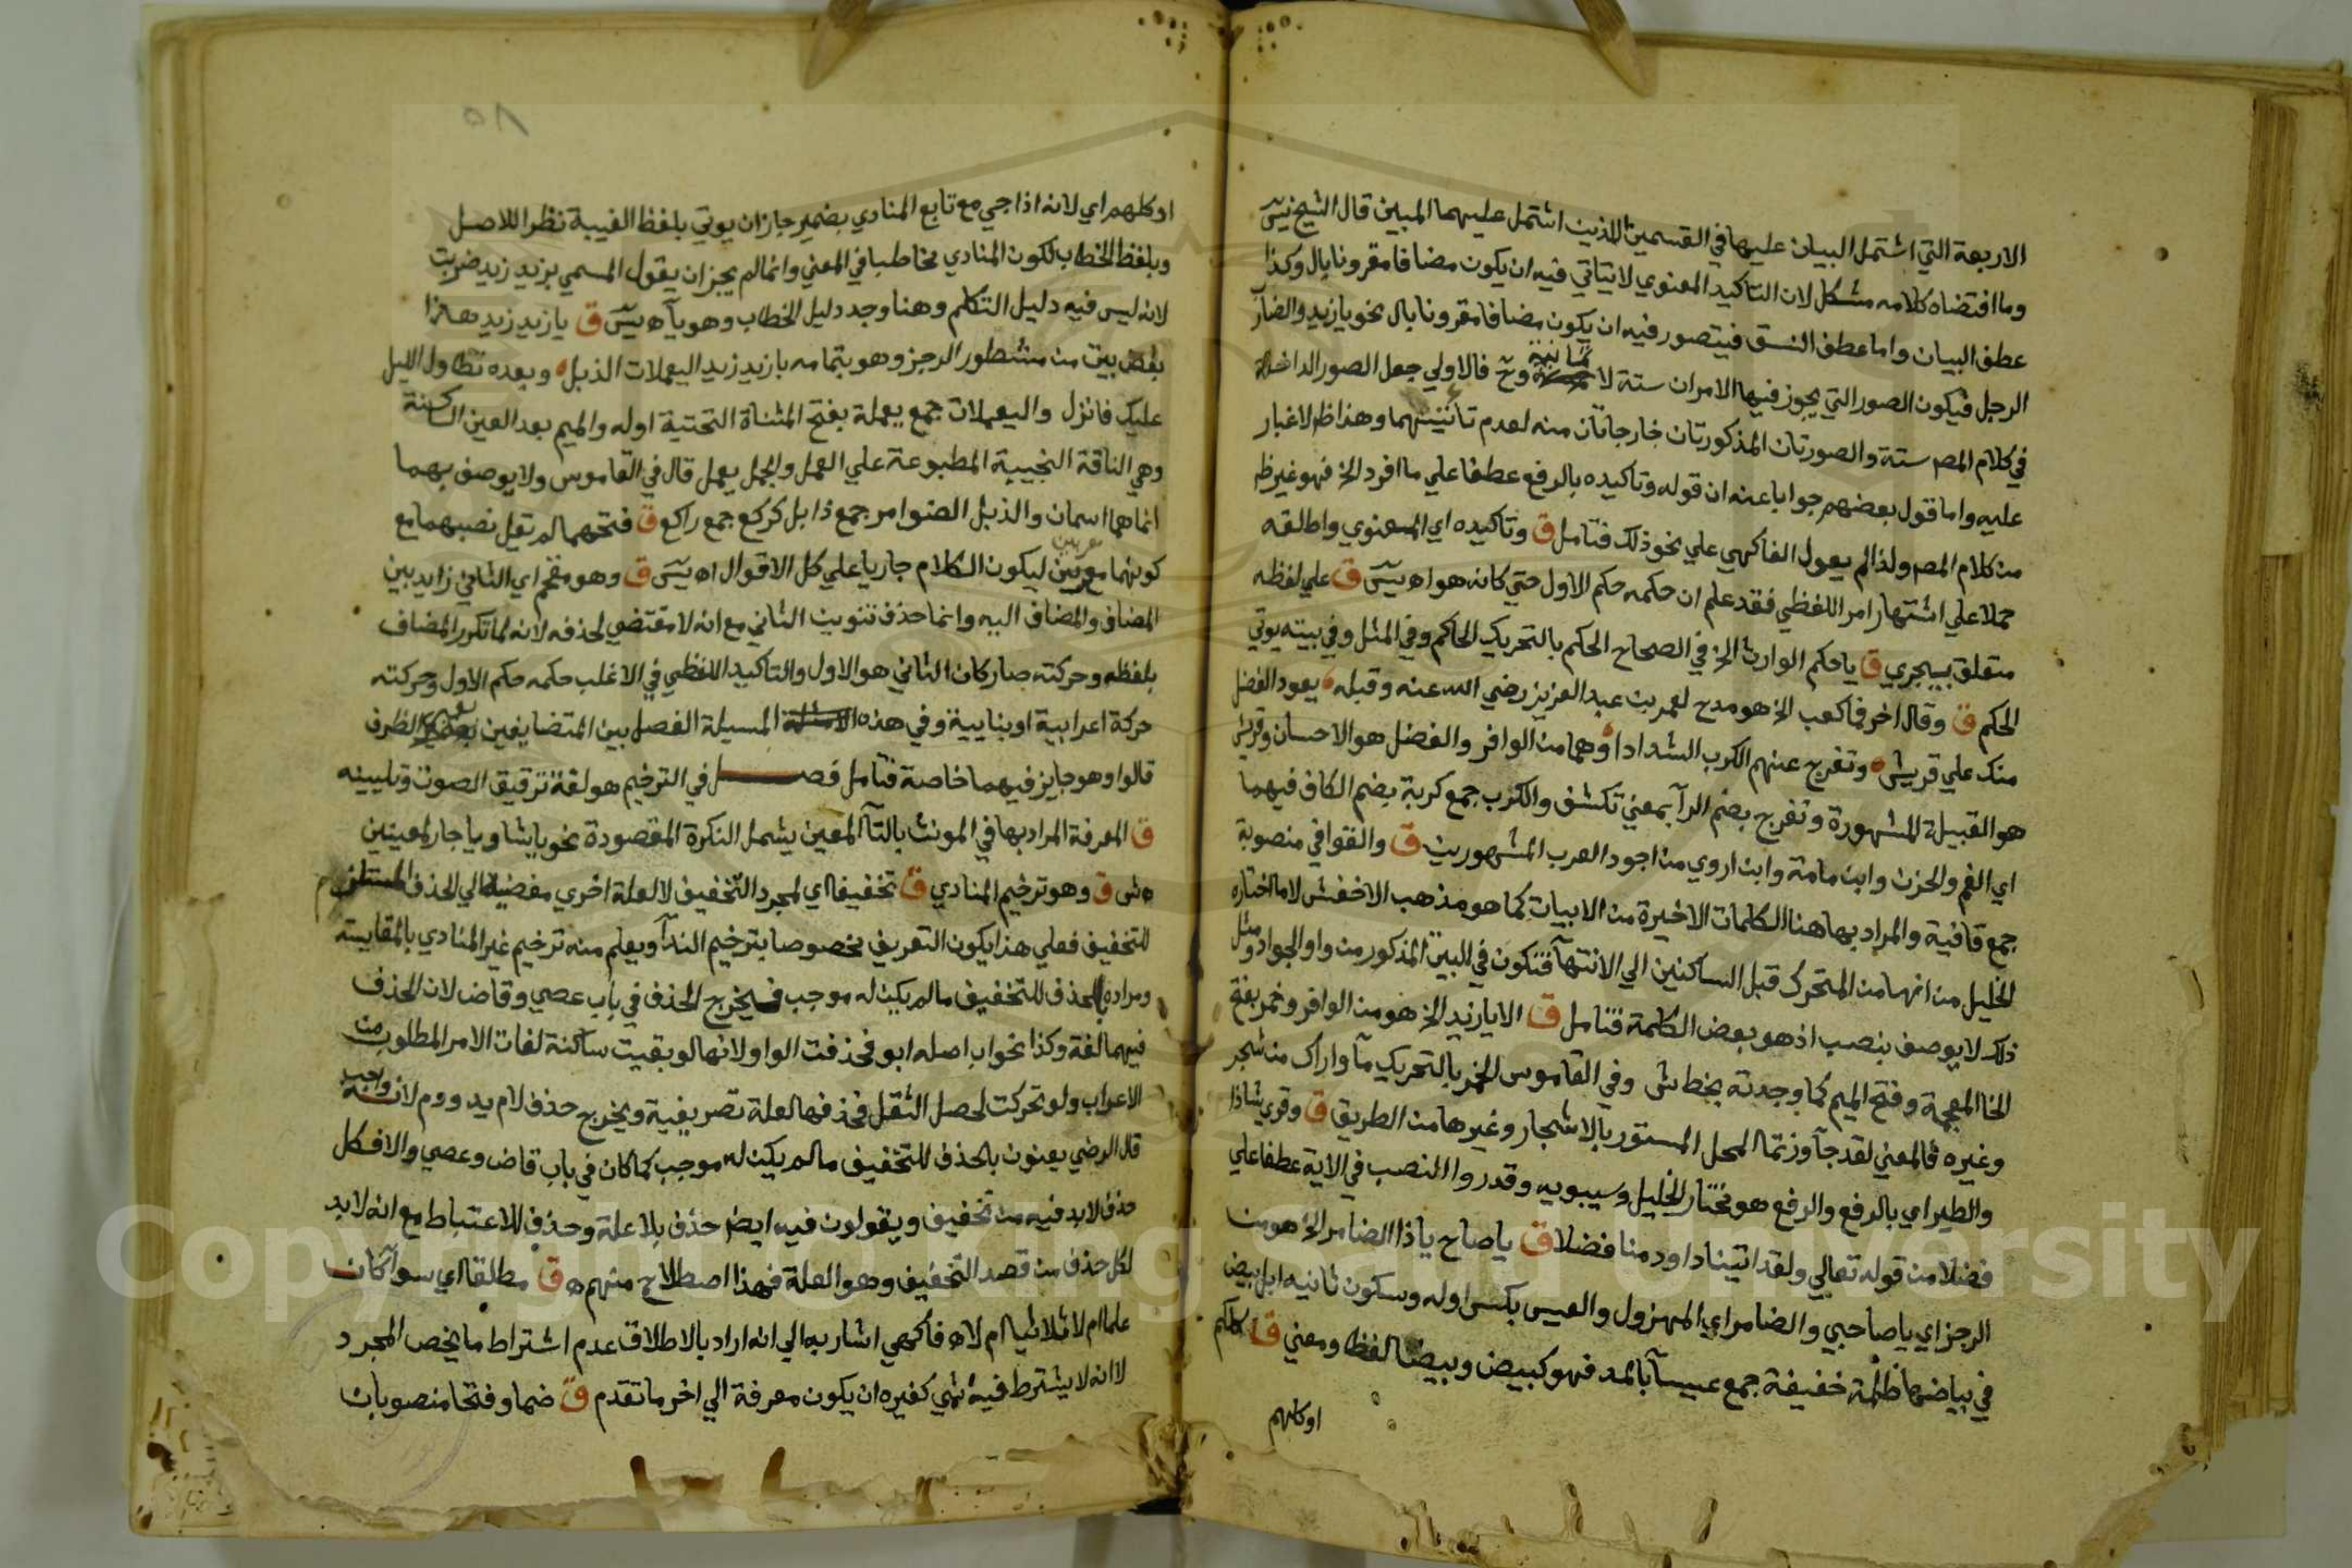 الاربعة التي اشتمل البيان عليها في القسمين اللذين اشتمل عليهما المبين قال الشيخ يس
وما اقتضاه كلامه مشكل لان التاكيد المعنوي لا يتاتي فيه ان يكون مضافا مقرونا بال وكذا
عطف البيان واما عطف النسق فيتصور فيه ان يكون مضافا مقرونا بال نحو يا زيد والضار
الرجل فيكون الصور التي يجوز فيها الامران ستة لا ثمانية وح فالاولي جعل الصور الداخلة
في كلام المصـ ستة والصورتان المذكورتان خارجاتان منه لعدم تاتيتهما وهذا ظـ لا غبار
عليه واما قول بعضهم جوابا عنه ان قوله وتاكيده بالرفع عطفا علي ما افرد الخ فهو غير ظـ
من كلام المصـ ولذا لم يعول الفاكهي علي نحو ذلك فتامل ق وتاكيده اي المعنوي واطلقه
حملا علي اشتهار امر اللفظي فقد علم ان حكمه حكم الاول حتي كانه هو اه يس ق علي لفظه
متعلق بيجري ق يا حكم الوارث الخ في الصحاح الحكم بالتحريك الحاكم وفي المثل وفي بيته يوتي
الحكم ق وقال اخر فما كعب الخ هو مدح لعمر بن عبد العزيز رضي الله عنه وقبله يعود الفضل
منك علي قريش وتفرج عنهم الكرب الشدادا وهما من الوافر والفضل هو الاحسان وقريش
هو القبيلة المشهورة وتفرج بضم الرآ بمعني تكشف والكرب جمع كربة بضم الكاف فيهما
اي الغم والحزن وابن مامة وابن اروي من اجود العرب المشهورين ق والقوافي منصوبة
جمع قافية والمراد بها هنا الكلمات الاخيرة من الابيات كما هو مذهب الاخفش لا ما اختاره
الخليل من انها من المتحرك قبل الساكنين الي الانتهآ فتكون في البيت المذكور من واو الجوادا ومثل
ذلك لا يوصف بنصب اذ هو بعض الكلمة فتامل ق الا يا زيد الخ هو من الوافر وخمر بفتح
الخا المعجمة وفتح الميم كما وجدته بخط ش وفي القاموس الخمر بالتحريك مآ واراك من شجر
وغيره فالمعني لقد جآوزتما المحل المستور بالاشجار وغيرها من الطريق ق وقري شاذا
والطير اي بالرفع والرفع هو مختار الخليل وسيبويه وقدروا النصب في الاية عطفا علي
فضلا من قوله تعالي ولقد اتينا داود منا فضلا ق يا صاح يا ذا الضامر الخ هو من
الرجز اي يا صاحبي والضامر اي المهزول والعيس بكسر اوله وسكون ثانيه ابل بيض
في بياضها ظلمة خفيفة جمع عيسآ بالمد فهو كبيض وبيضا لفظا ومعني ق كلكم
اوكلهم
٨٥
او كلهم اي لانه اذا جي مع تابع المنادي بضمير جاز ان يوتي بلفظ الغيبة نظرا للاصل
وبلفظ الخطاب لكون المنادي مخاطبا في المعني وانما لم يجز ان يقول المسمي بزيد زيد ضربت
لانه ليس فيه دليل التكلم وهنا وجد دليل الخطاب وهو يآ اه يس ق يا زيد زيد هذا
بعض بيت من مشطور الرجز وهو بتمامه يا زيد زيد اليعملات الذبل وبعده تطاول الليل
عليك فانزل واليعملات جمع يعملة بفتح المثناة التحتية اوله والميم بعد العين الساكنة
وهي الناقة النجيبة المطبوعة علي العمل والجمل يعمل قال في القاموس ولا يوصف بهما
انما هما اسمان والذبل الضوامر جمع ذابل كركع جمع راكع ق فتحهما لم تقل نصبهما مع
كونهما معربين ليكون الكلام جاريا علي كل الاقوال اه يس ق وهو مقحم اي الثاني زايد بين
المضاف والمضاف اليه وانما حذف تنوين الثاني مع انه لا مقتضي لحذفه لانه لما تكرر المضاف
بلفظه وحركته صار كان الثاني هو الاول والتاكيد اللفظي في الاغلب حكمه حكم الاول وحركته
حركة اعرابية او بنايية وفي هذه المسيلة الفصل بين المتضايفين بغير الظرف
قالوا وهو جايز فيهما خاصة فتامل فصــل في الترخيم هو لغة ترقيق الصوت وتليينه
ق المعرفة المراد بها في المونث بالتآ المعين يشمل النكرة المقصودة نحو يا شا ويا جار لمعينين
اه ش ق وهو ترخيم المنادي ق تخفيفا اي لمجرد التخفيف لا لعلة اخري مفضية الي الحذف المستلزم
للتخفيف فعلي هذا يكون التعريف مخصوصا بترخيم الندآ ويعلم منه ترخيم غير المنادي بالمقايسة
ومراده بالحذف للتخفيف ما لم يكن له موجب فيخرج الحذف في باب عصي وقاض لان الحذف
فيهما لغة وكذا نحو اب اصله ابو فحذفت الواو لانها لو بقيت ساكنة لفات الامر المطلوب من
الاعراب ولو تحركت لحصل الثقل فحذفها لعلة تصريفية ويخرج حذف لام يد ودم لانه واجب
قال الرضي يعنون بالحذف للتخفيف ما لم يكن له موجب كما كان في باب قاض وعصي والا فكل
حذف لابد فيه من تخفيف ويقولون فيه ايضـ حذف بلا علة وحذف للاعتباط مع انه لابد
لكل حذف من قصد التخفيف وهو العلة فهذا اصطلاح منهم اه ق مطلقا اي سوآ كان
علما ام لا ثلاثيا ام لا اه فاكهي اشار به الي انه اراد بالاطلاق عدم اشتراط ما يخص المجرد
لا انه لا يشترط فيه شي كغيره ان يكون معرفة الي اخر ما تقدم ق ضما وفتحا منصوبان
Copyright © King Saud University